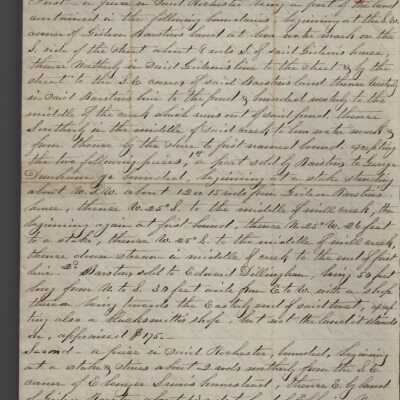 First - a piece in said Rochester being a part of the land
contained in the following boundaries - beginning at the S.E.
corner of Gideon Barstow's land at low water mark on the
S. side of the street about 8 rods S. of said Gideon's house,
thence Northerly in said Gideon's line to the street & by the
street to the S.E. corner of said Barstow's land thence Westerly
in said Barstow's line to the pond & bounded westerly to the
middle of the creek which runs out of said pond, thence
Southerly in the middle of said creek to low water mark &
from thence by the shore to first named bound - excepting
the two following pieces, 1st a part sold by Barstow to George
Dunham & bounded, beginning at a stake standing
about W. S. W. about 12 or 15 rods from Gideon Barstow's
house, thence W. 25° S. to the middle of mill creek, then
beginning again at first bound, thence N. 25° W. 26 feet
to a stake, thence W. 25° S. to the middle of mill creek,
thence down stream in middle of creek to the end of first
line. 2d Barstow sold to Edward Dillingham, being 50 feet
long from N. to S. 30 feet wide from E to W. with a shop
thereon being towards the Easterly end of said street, excep-
ting also a blacksmith's shop - but not the land it stands
on, appraised $175.-
Second - a piece in said Rochester, bounded, beginning
at a stake & stones about 2 rods northerly from the S.E.
corner of Ebenezer homestead, thence E. by land
of Gideon Barstow about